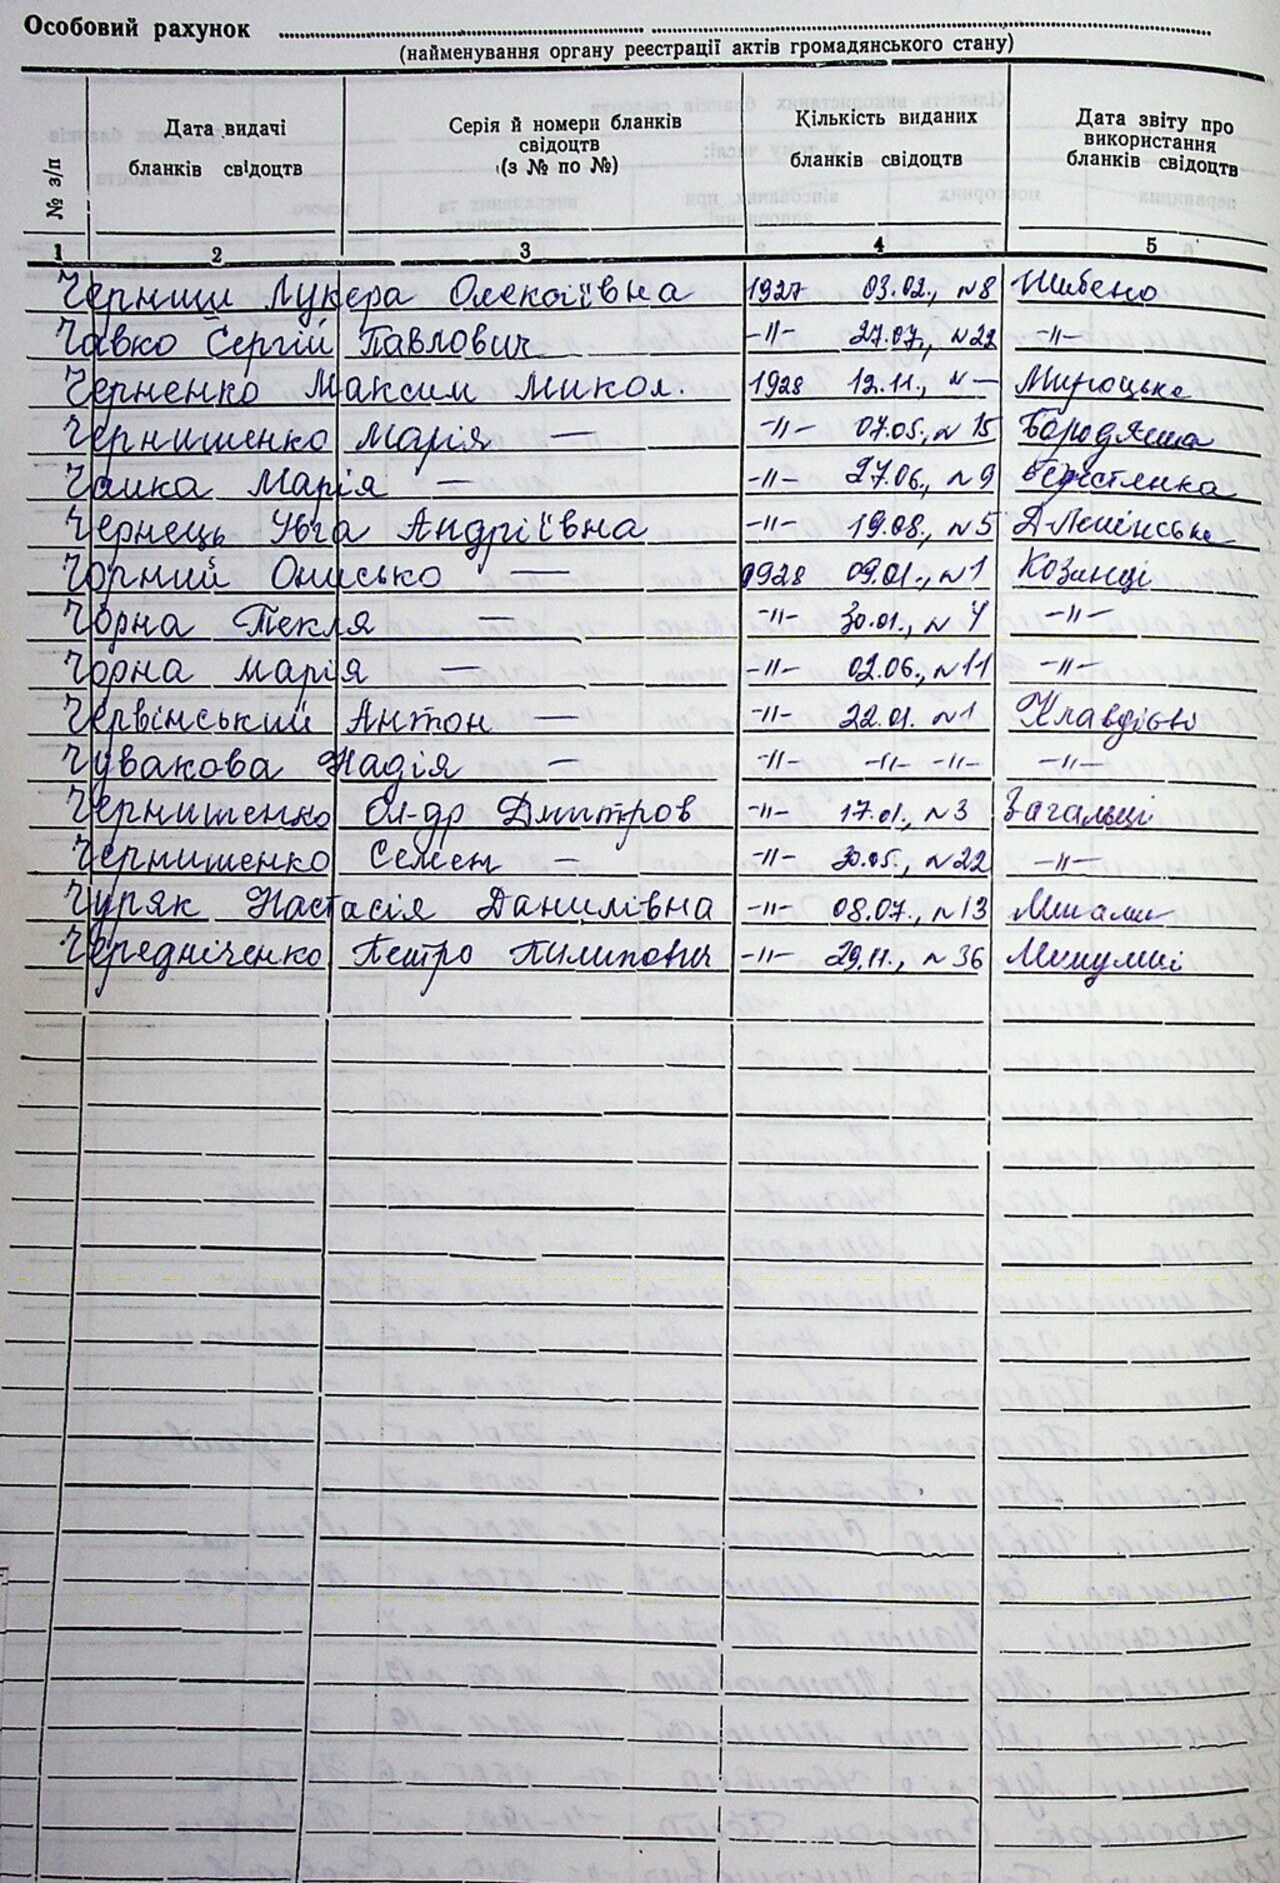 Особовий рахунок
(найменування органу реєстрації актів громадянського стану)
№ з/п
Дата видачі
бланків свідоцтв
Серія й номери бланків
свідоцтв
(з № по №)
Кількість виданих
бланків свідоцтв
Дата звіту про
використання
бланків свідоцтв
1 2 3 4 5
Черниш Лукєра Олексіївна 1927 03.02., №8 Шибено
Чавко Сергій Павлович -"- 27.07., №22 -"-
Черненко Максим Микол. 1928 12.11., № — Мироцьке
Чернишенко Марія — -"- 07.05., № 15 Бородянка
Чайка Марія — -"- 27.06., №9 Берестянка
Чернець УВга Андріївна -"- 19.08., №5 Д-Ленінське
Чорний Онисько — 1928 09.01., №1 Козинці
Чорна Текля — -"- 30.01., № 4 -"-
Чорна Марія — -"- 02.06., №11 -"-
Червінський Антон — -"- 22.01. №1 Клавдієво
Чувакова Надія — -"- -"- -"- -"-
Чернишенко Ол-др Дмитров -"- 17.01., №3 Загальці
Чернишенко Семен — -"- 30.05., №22 -"-
Чуряк Настасія Данилівна -"- 08.07., №13
Чередніченко Петро Пилипович -"- 29.11., №36